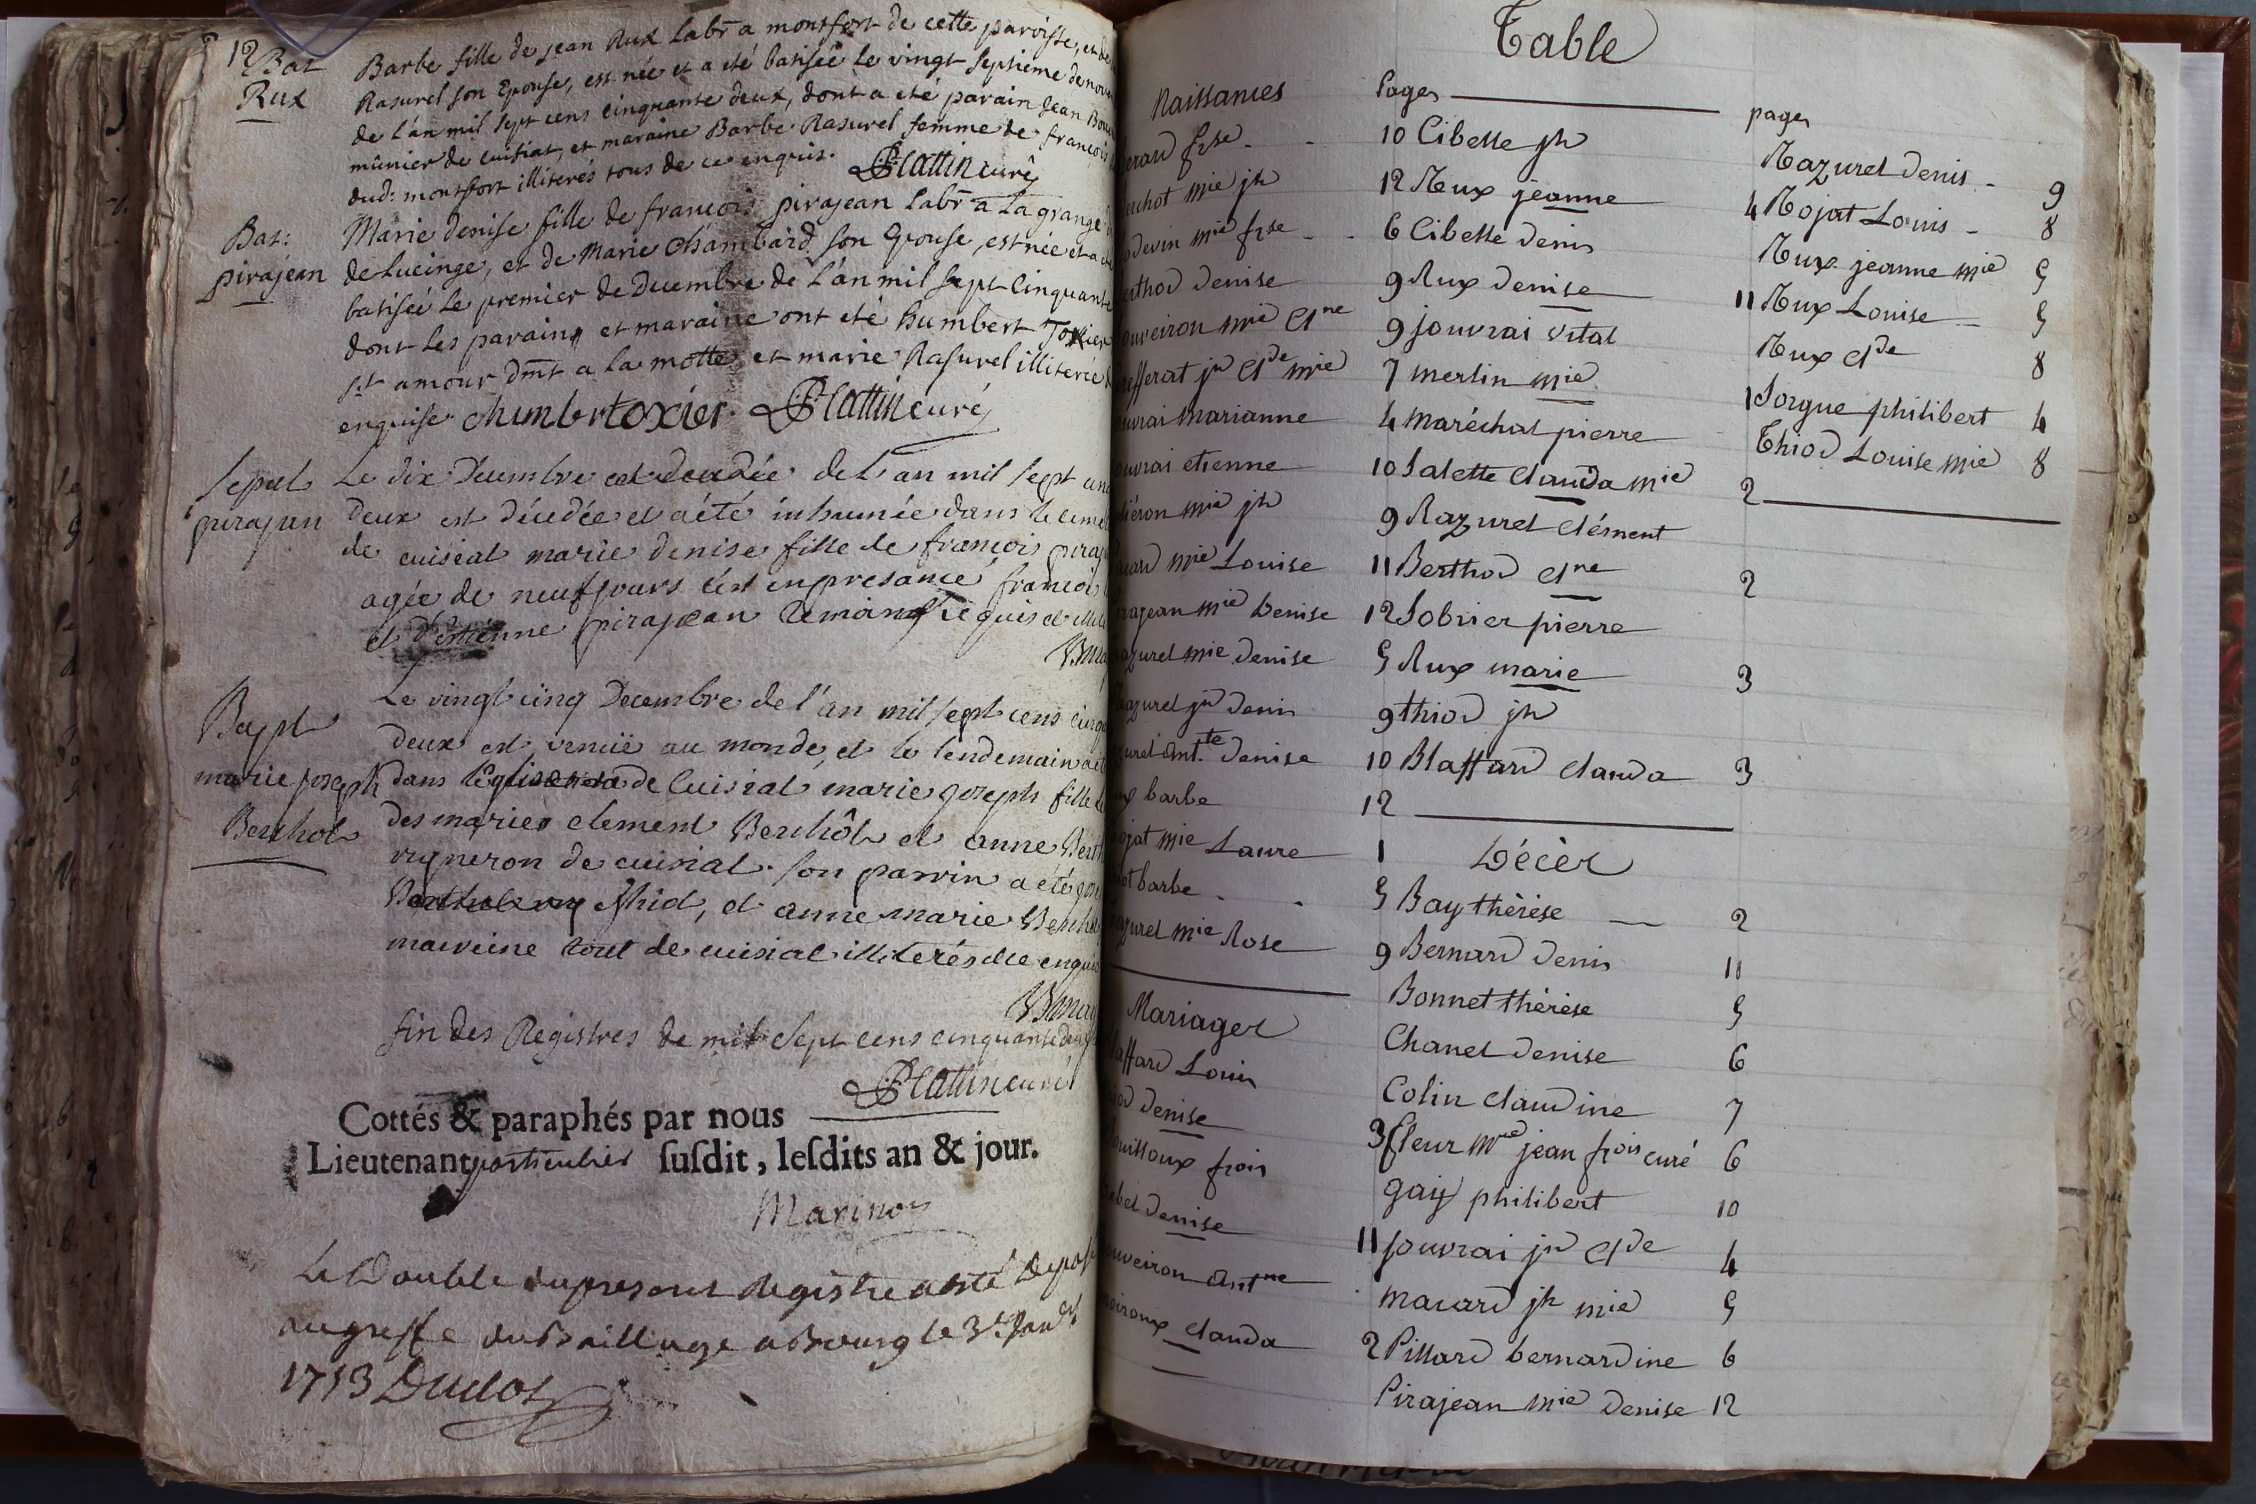 12 Bat
Rux
Barbe fille de jean Rux labr a montfort de cette paroisse, et de
Rasurel son Epouse, est née et a eté batisée le vingt septieme de nov
de l'an mil sept cens cinquante deux, dont a eté parain Jean
mûnier de cuisiat, et maraine Barbe Rasurel femme de françois
dud: montfort illiterés tous de ce enquis. Plattin curé
Bat:
pirajean
Marie denise fille de françois pirajean labr a la grange
de Lucinge, et de Marie Chambard son Epouse, est née et a
batisée le premier de Decembre de l'an mil sept Cinquante
dont les parains et maraine ont eté humbert Toxier
st amour dmt a la motte et marie Rasurel illiterée
enquise chumbertoxier. Plattin curé
Sepul
pirajean
Le dix Decembre est decedée de l'an mil sept
deux est décedée et a été inhumée dans le cime
de cuiseat marie denise fille de françois piraj
agée de neuf jours c'est en presance françois
et d'estienne pirajean temoins requis et
Bapt
marie joseph
Berchot
Le vingt cinq Decembre de l'an mil sept cens cinq
deux est venuë au monde, et le lendemain a
dans l'Eglise de Cuisiat marie joseph fille
des mariés clement Berchôt et anne Berth
vigneron de cuisiat. son parrin a été
thid, et anne marie Berch
marveine tout de cuisiat illiterés de ce enquis
fin des Registres de mil sept cens cinquante deux
Plattin curé
Cottés & paraphés par nous
Lieutenant particulier susdit, lesdits an & jour.
Marinon
Le Double du present Registre a esté Deposé
au greffe du Bailliage a Bourg le 3e Janer
1753 Duclos
Table
Naissances Pages
erard fse - - 10
uchot mie jh 12
odevin mie fse - - 6
erthod denise 9
ouveiron mie Clne 9
efferat jn Cde mie 7
uvrai marianne 4
ouvrai etienne 10
iéron mie jh 9
card mie Louise 11
rajean mie Denise 12
azurel mie denise 5
azurel jn denis 9
urel Antte denise 10
ux barbe 12
ojat mie Laure 1
ot barbe - - 5
azurel mie Rose 9
Mariages
laffard Louis
iod denise 3
ouilloux frois
bel denise 11
uveiron Antne
oiroux clauda 2
pages
Cibelle jh
Rux jeanne 4
Cibelle denis
Rux denise 11
jouvrai vital
merlin mie 1
Maréchal pierre
Salette clauda mie 2
Razurel clément
Berthod Clne 2
Sobrier pierre
Rux marie 3
thiod jh
Blaffard clauda 3
Décès
Bay thérèse 2
Bernard denis 11
Bonnet thérèse 5
Chanel denise 6
Colin claudine 7
fleur mre jean frois curé 6
gay philibert 10
jouvrai jn Cde 4
macard jh mie 5
Pillard bernardine 6
Pirajean mie denise 12
Razurel denis - 9
Rojat Louis - 8
Rux jeanne mie 5
Rux Louise 5
Rux Cde 8
Sorgue philibert 4
Thiod Louise mie 8